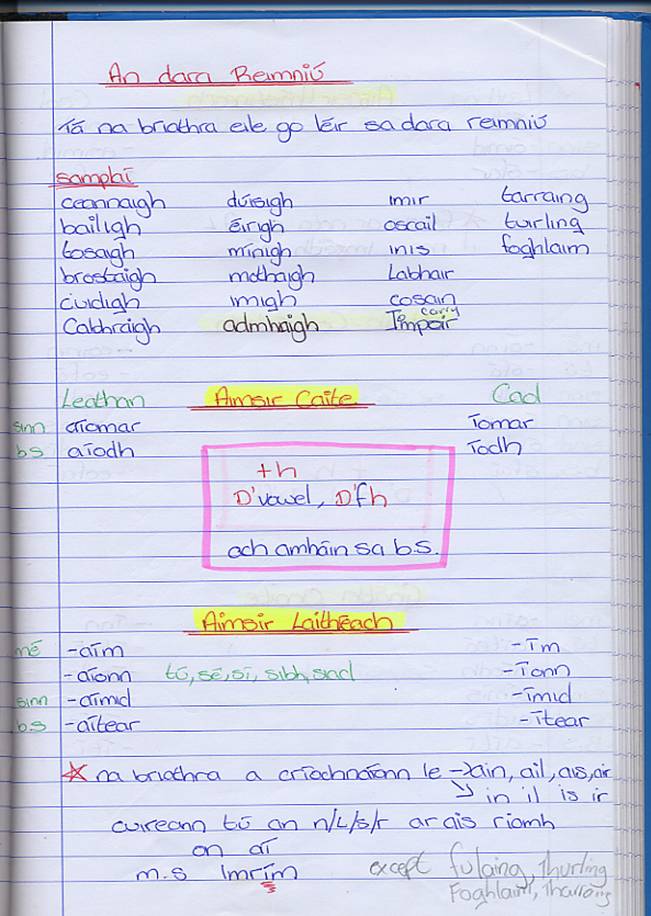 An dara Réimniú
Tá na briathra eile go léir sa dara réimniú
samplaí
ceannaigh dúisigh imir tarraing
bailigh éirigh oscail tuirling
tosaigh mínigh inis foghlaim
brostaigh mothaigh Labhair
cuidigh imigh cosain
Cabhraigh admhaigh Iompair carry
Leathan Aimsir Caite Caol
sinn aíomar íomar
b.s aíodh íodh
+h
D'vowel, D'fh
ach amháin sa b.s.
Aimsir Láithreach
mé -aím -ím
-aíonn tú, sé, sí, sibh, siad -íonn
sinn -aímid -ímid
b.s -aítear -ítear
* na briathra a críochnaíonn le → ain, ail, ais, air
↘ in il is ir
cuireann tú an n/l/s/r ar ais riamh
an aí
m.s Imrím except fulaing, Thurling
Foghlaim, Tharraing